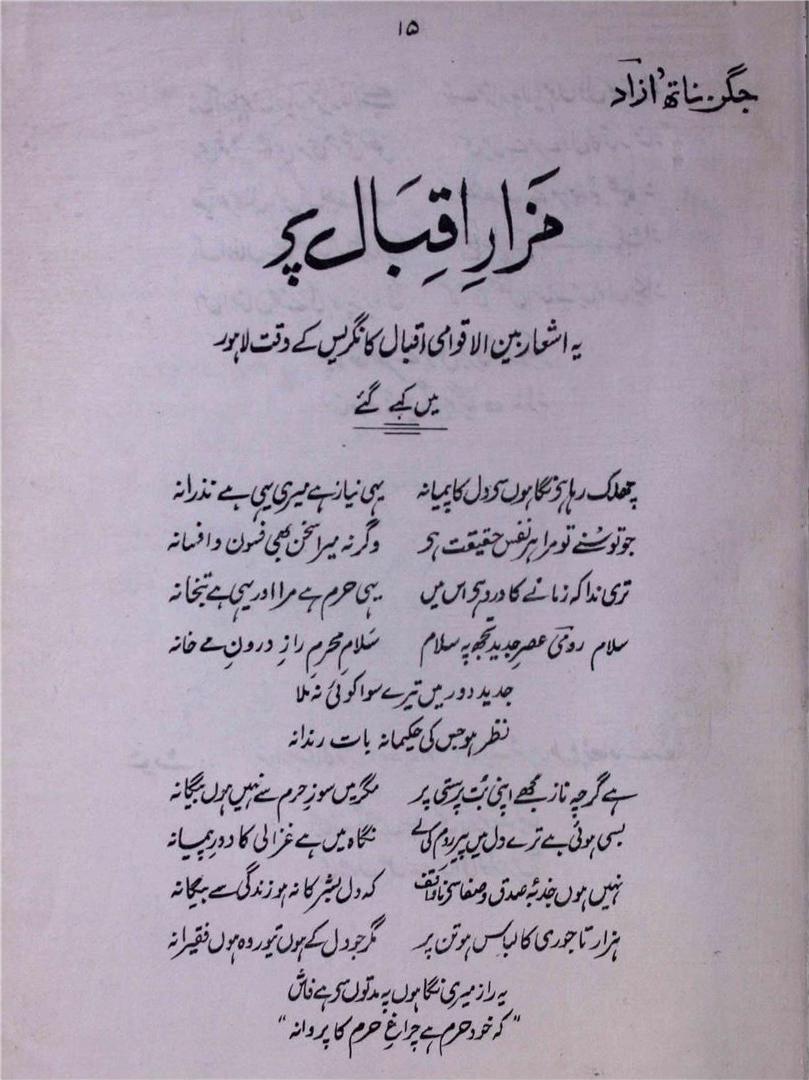 ۱۵
جگن ناتھ آزاد
مزارِ اقبال پر
یہ اشعار بین الاقوامی اقبال کانگریس کے وقت لاہور
میں کہے گئے
چھلک رہا ہی نگاہوں سی دل کا پیمانہ یہی نیاز ہے میری یہی ہے نذرانہ
جو تو سُنے تو مرا ہر نفس حقیقت ہی وگرنہ میرا سخن بھی فسون و افسانہ
تری ندا کہ زمانے کا درد ہی اس میں یہی حرم ہے مرا اور یہی ہے بتخانہ
سلام رومیٔ عصرِ جدید تجھ پہ سلام سَلام محرمِ رازِ درونِ مے خانہ
جدید دور میں تیرے سوا کوئی نہ ملا
نظر ہو جس کی حکیمانہ بات رندانہ
ہے گرچہ ناز مجھے اپنی بُت پرستی پر مگر میں سوزِ حرم سے نہیں ہوں بیگانہ
بسی ہوئی ہے ترے دل میں پیر روم کی لے نگاہ میں ہے غزالی کا دورِ پیمانہ
نہیں ہوں جذبۂ صدق و صفا سی ناواقف کہ دل بشر کا نہ ہو زندگی سے بیگانہ
ہزار تاجوری کا لباس ہو تن پر مگر جو دل کے ہوں تیور وہ ہوں فقیرانہ
یہ راز میری نگاہوں پہ مدتوں سی ہے فاش
"کہ خود حرم ہے چراغِ حرم کا پروانہ"